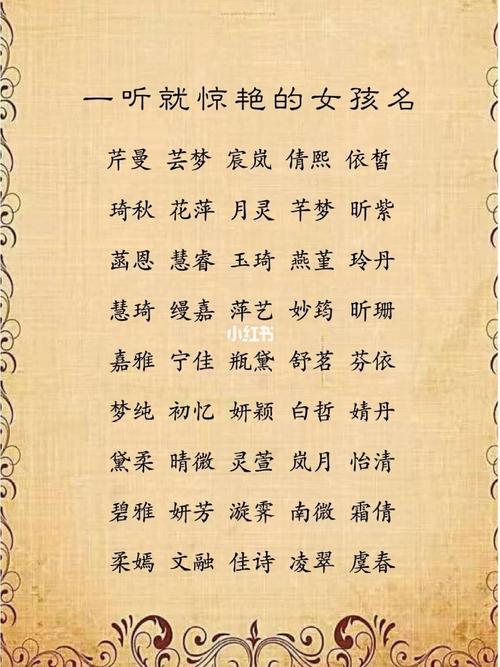 一听就惊艳的女孩名
芹曼 芸梦 宸岚 倩熙 依皙
琦秋 花萍 月灵 芊梦 昕紫
菡恩 慧睿 玉琦 燕堇 玲丹
慧琦 缦嘉 萍艺 妙筠 昕珊
小红书
嘉雅 宁佳 瓶黛 舒茗 芬依
梦纯 初忆 妍颖 白哲 婧丹
黛柔 晴微 灵萱 岚月 怡清
碧雅 妍芳 漩霁 南微 霜倩
柔嫣 文融 佳诗 凌翠 虞春